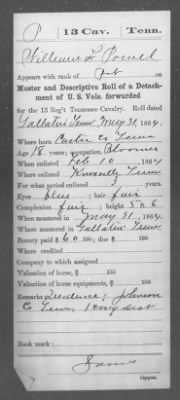 P | 13 Cav. | Tenn.
William L Powel
Appears with rank of Pvt on
Muster and Descriptive Roll of a Detach-
ment of U. S. Vols. forwarded
for the 13 Reg't Tennessee Cavalry. Roll dated
Gallatin Tenn May 31, 1864.
Where born Carter Co Tenn
Age 18 years; occupation
When enlisted Feb 10, 1864
Where enlisted Knoxville Tenn
For what period enlisted 3 years.
Eyes blue; hair fair
Complexion fair; height 5 ft. 6 in.
When mustered in May 31, 1864.
Where mustered in Gallatin Tenn
Bounty paid $ 60/100; due $ /100
Where credited
Company to which assigned
Valuation of horse, $ /100
Valuation of horse equipments, $ /100
Remarks: Residence, Johnson
Co Tenn, 1 Cong Dist
Book mark:
Copyist.